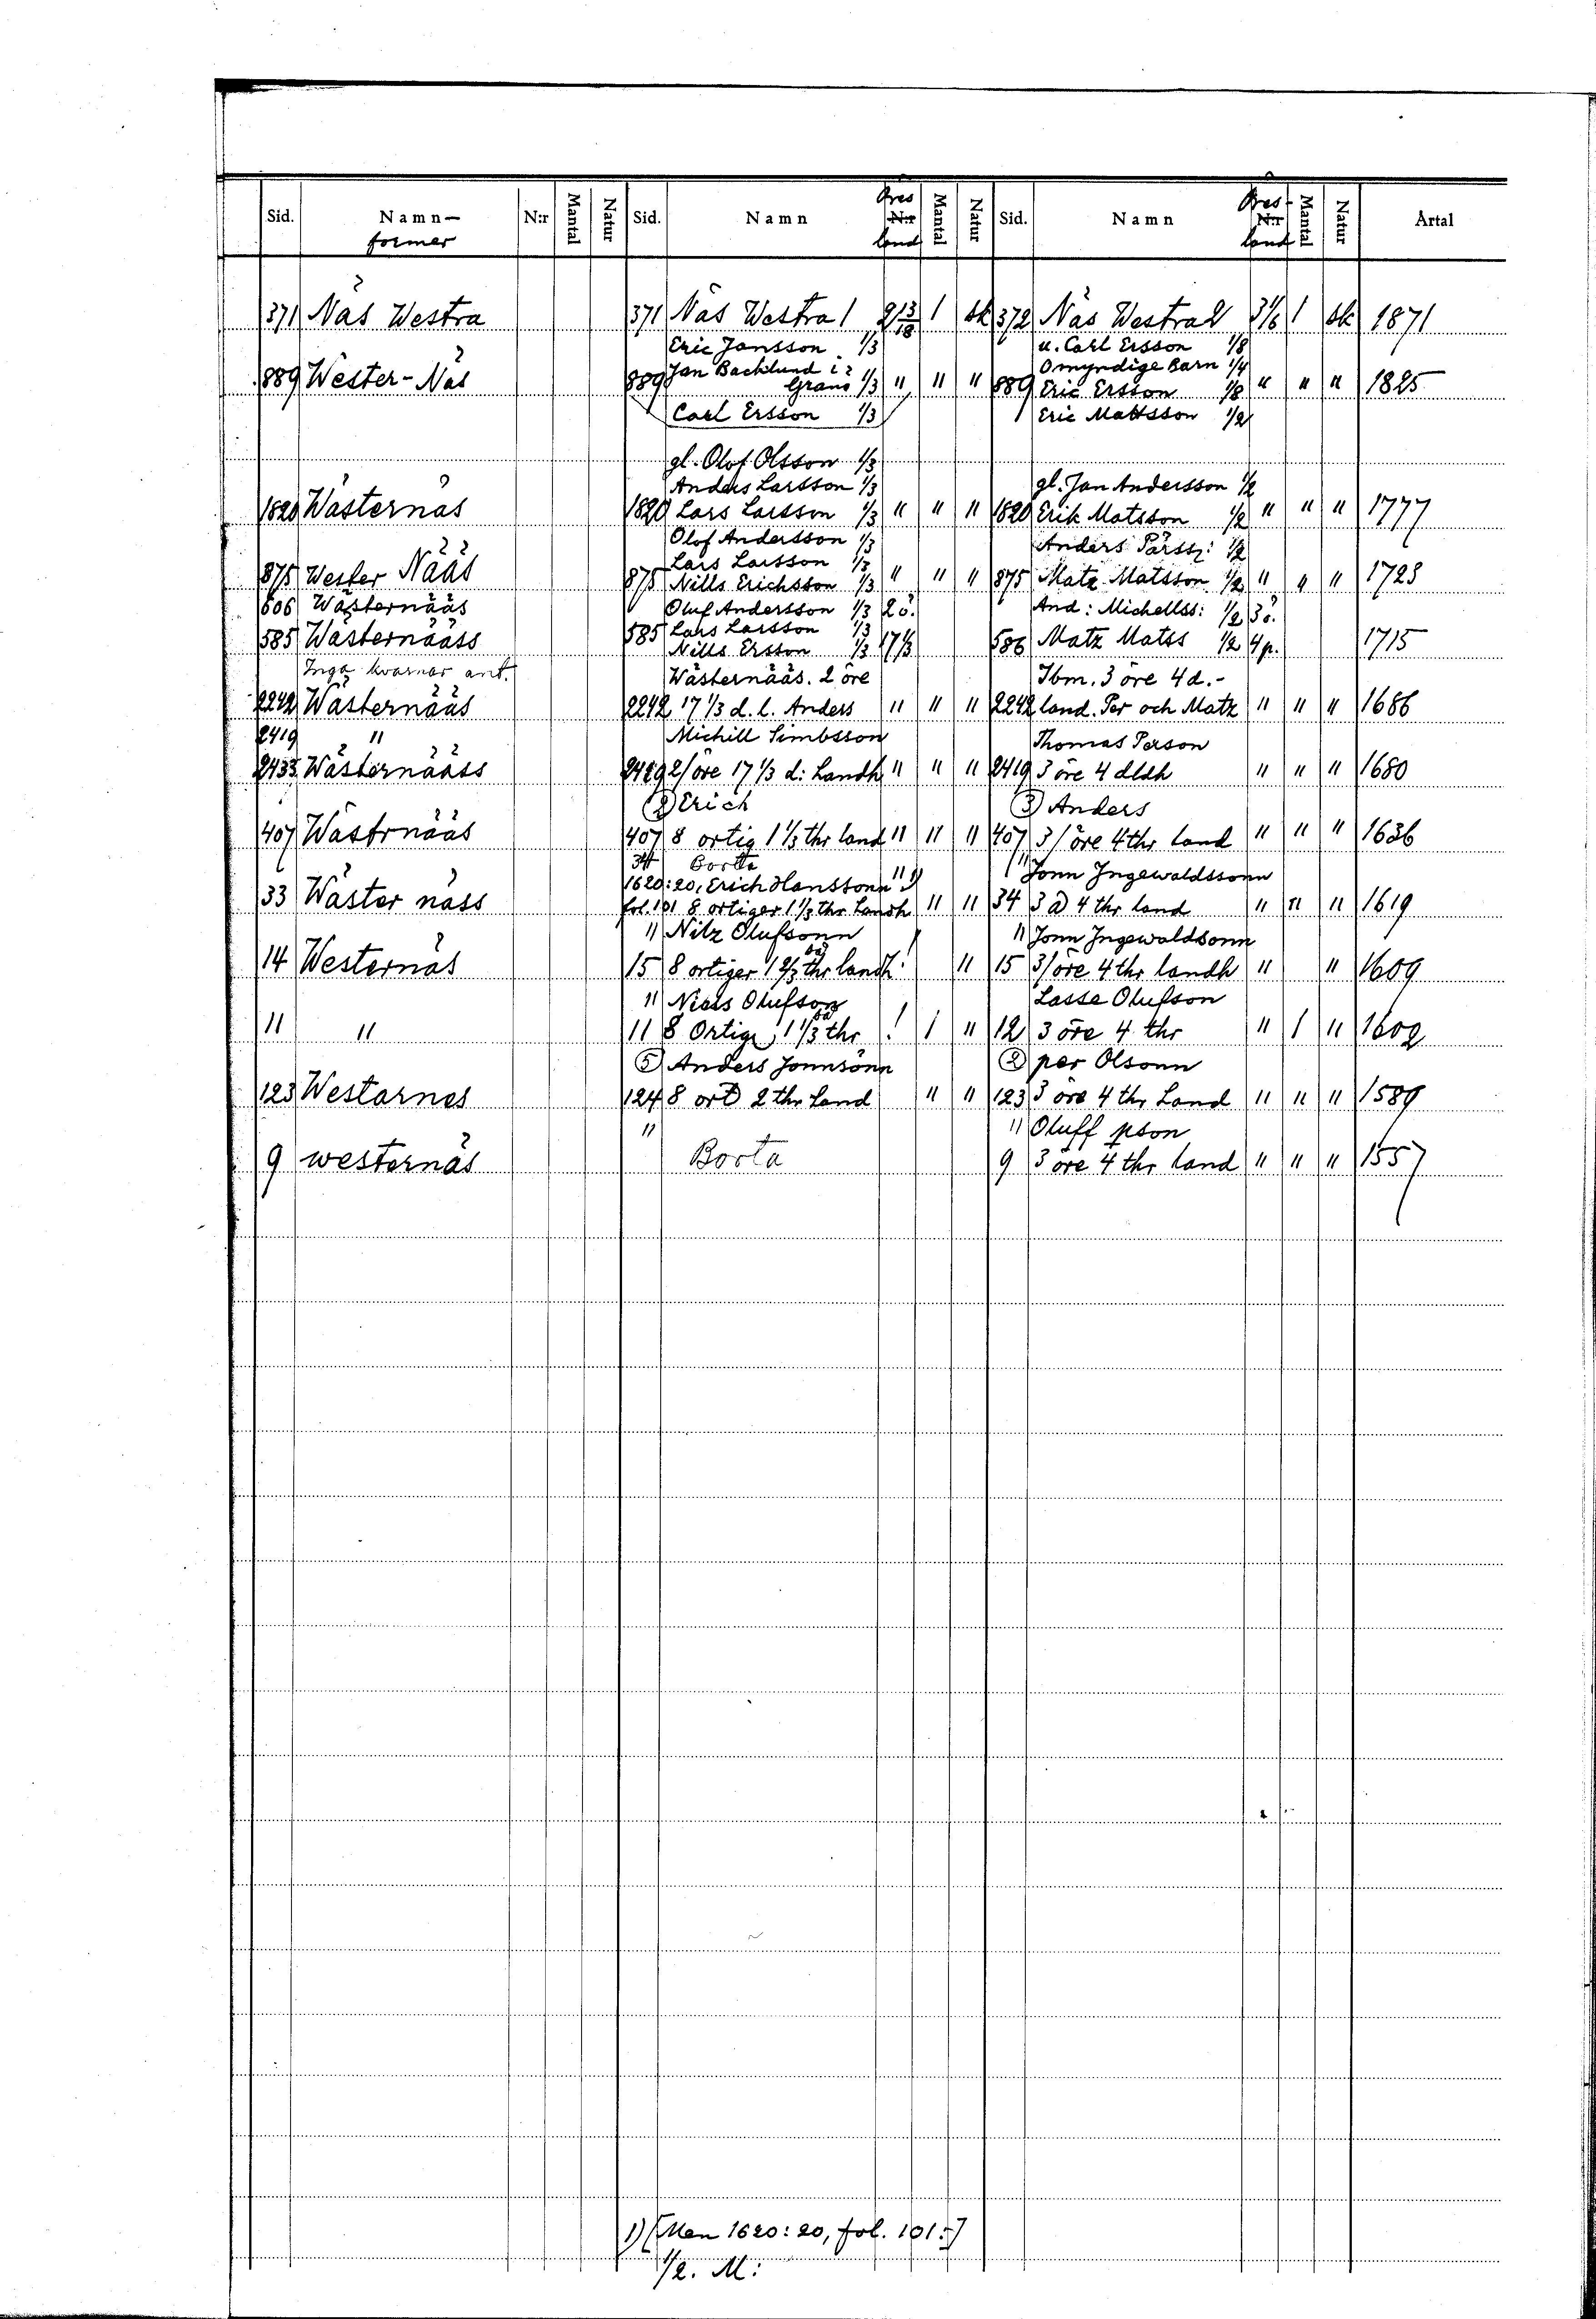 Sid. Namn- N:r Mantal Natur Sid. Namn Öres N:r Mantal Natur Sid. Namn Öres N:r Mantal Natur Årtal
former land land
371 Näs Westra 371 Näs Westra 1 2 13/18 1 sk 372 Näs Westra 2 3 1/6 1 sk 1871
Eric Jansson 1/3 u. Carl Ersson 1/8
Jan Backlund i Omyndige Barn 1/4
889 Wester-Näs 889 Grans 1/3 " " " 889 Eric Ersson 1/8 " " " 1825
Carl Ersson 1/3 Eric Mattsson 1/2
gl. Olof Olsson 1/3
Anders Larsson 1/3 gl. Jan Andersson 1/2
1820 Wästernäs 1820 Lars Larsson 1/3 " " " 1820 Erik Matsson 1/2 " " " 1777
Olof Andersson 1/3 Anders Pärssz: 1/2
Lars Larsson 1/3
875 Wester Nääs 875 Nills Erichsson 1/3 " " " 875 Matz Matsson 1/2 " " " 1723
606 Wästernääs Oluf Andersson 1/3 2 ö. And: Michellss: 1/2 3 ö.
585 Wästernääss 585 Lars Larsson 1/3 586 Matz Matss 1/2 4 p. 1715
Nills Ersson 1/3 17 1/3
Inga kvarnar ant. Wästernääs. 2 öre Ibm. 3 öre 4 d.-
2242 Wästernääs 2242 17 1/3 d. l. Anders " " " 2242 land. Per och Matz " " " 1686
2419 " Michill Simbsson Thomas Person
2433 Wästernääss 2419 2/öre 17 1/3 d: Landh " " " 2419 3 öre 4 dldh " " " 1680
2) Erich 3) Anders
407 Wästrnääs 407 8 ortig 1 1/3 thr land " " " 407 3/öre 4 thr land " " " 1636
34 Borta " Jonn Ingewaldssonn
1620:20, Erich Hanssonn " 1)
33 Wäster näss fol. 101 8 ortiger 1 1/3 thr Landh " " 34 3 4 thr land " " " 1619
" Nilz Olufsonn " Jonn Ingewaldsonn
14 Westernäs 15 8 ortiger 1 2/3 thr landh " 15 3/öre 4 thr landh " " 1609
" Niels Olufson Lasse Olufson
11 " 11 8 Ortige 1 1/3 thr 1 " 12 3 öre 4 thr " 1 " 1602
5) Anders Jonnsönn 2) per Olsonn
123 Westarnes 124 8 ort 2 thr Land " " 123 3 öre 4 thr Land " " " 1589
" " Oluff pson
9 westernäs Borta 9 3 öre 4 thr land " " " 1557
1) [Men 1620:20, fol. 101:]
1/2. M: